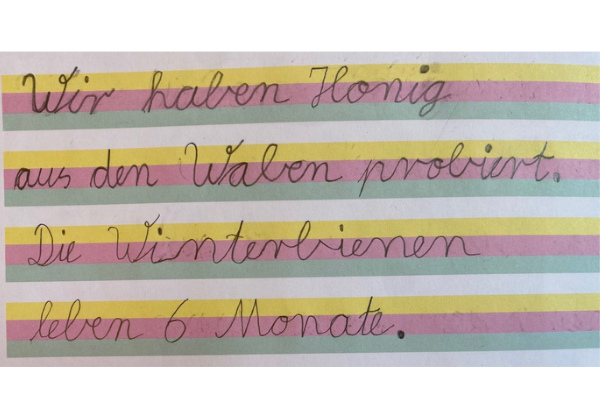 Wir haben Honig
aus den Waben probiert.
Die Winterbienen
leben 6 Monate.